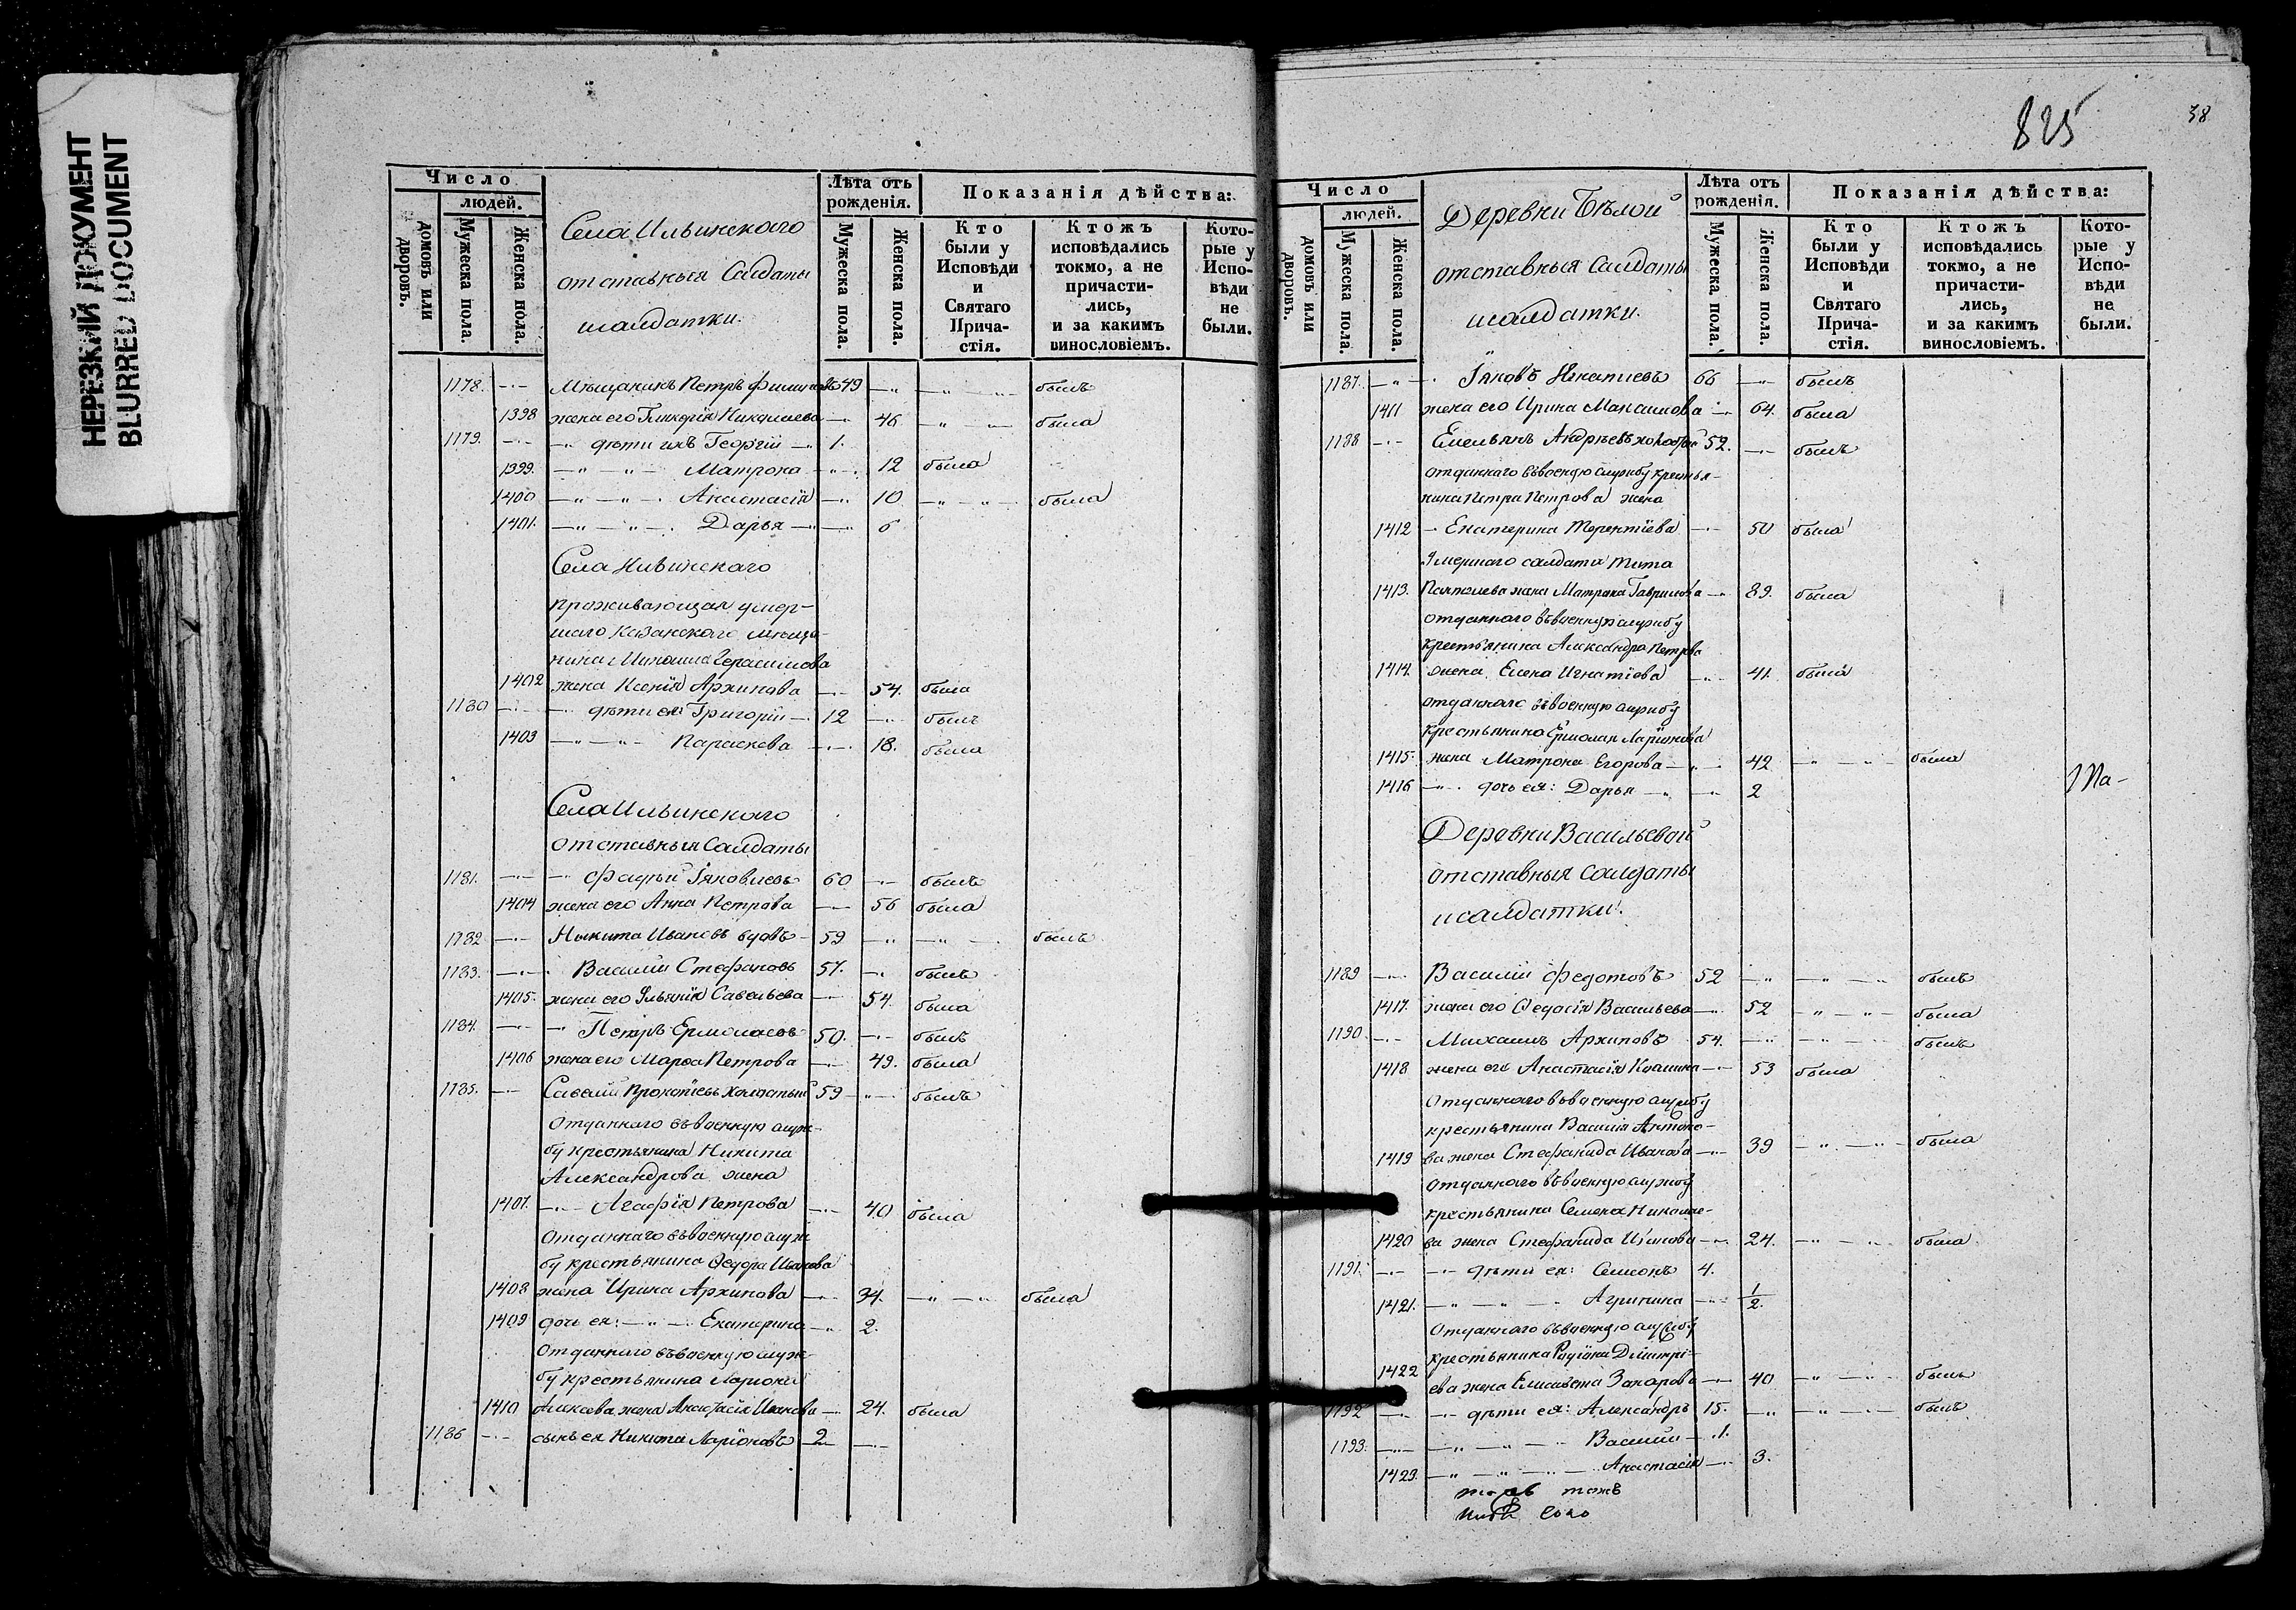 НЕРЕЗКИЙ ДОКУМЕНТ
BLURRED DOCUMENT
Число
людей.
домовъ или дворовъ.
Мужеска пола.
Женска пола.
Села Ильинскаго
отставныя Салдаты
исалдатки.
Лѣта отъ рожденія.
Мужеска пола.
Женска пола.
Показанія дѣйства:
Кто были у Исповѣди и Святаго Прича-стія.
Ктожъ исповѣдались токмо, а не причасти-лись, и за какимъ винословіемъ.
Кото-рые у Испо-вѣди не были.
1178. Мѣщанинъ Петръ 49 былъ
1398 жена его Гликерія Николаева 46 была
1179. дѣти ихъ Георгій 1.
1399. Матрона 12 была
1400 Анастасія 10 была
1401. Дарья 6
Села
проживающая умер-
шаго Казанскаго мѣща-
нина Михаила Герасимова
1402 жена Ксенія Архипова 54. была
1180 дѣти ея: Григорій 12 былъ
1403 Параскева 18. была
Села Ильинскаго
отставныя Салдаты
1181. Фадѣй Іяковлевъ 60 былъ
1404 жена его Анна Петрова 56 была
1182 Никита Ивановъ вдовъ 59 былъ
1183. Василій Стефановъ 57. былъ
1405. жена его Ульянія Савельева 54. была
1184. Петръ Ермолаевъ 50. былъ
1406 жена его Марѳа Петрова 49. была
1185. Савелій Прокопіевъ холостый 59 былъ
Отданнаго въ военную служ-
бу крестьянина Никита
Александрова жена
1407. Агафія Петрова 40 была
Отданнаго въ военную служ
бу крестьянина Ѳедора Иванова
1408 жена Ирина Архипова 34. была
1409 дочь ея: Екатерина 2.
Отданнаго въ военную служ-
бу крестьянина Лариона
1410 жена Анастасія Иванова 24. была
1186 сынъ ея Никита Ларіоновъ 2
825
38
Число
людей.
домовъ или дворовъ.
Мужеска пола.
Женска пола.
Деревни Бѣлой
отставныя Салдаты
исалдатки.
Лѣта отъ рожденія.
Мужеска пола.
Женска пола.
Показанія дѣйства:
Кто были у Исповѣди и Святаго Прича-стія.
Ктожъ исповѣдались токмо, а не причасти-лись, и за какимъ винословіемъ.
Кото-рые у Испо-вѣди не были.
1187. Іяковъ Игнатиевъ 66 былъ
1411 жена его Ирина Максимова 64. была
1188 Емельянъ Андрѣевъ холостый 52. былъ
отданнаго въ военную службу крестья-
нина Петра Петрова жена
1412 Екатерина Терентіева 50 была
Умершаго салдата Тита
1413. жена Матрона Гаврилова 89. была
отданнаго въ военную службу
крестьянина Александра Петрова
1414. жена Елена Игнатіева 41. была
отданнаго въ военную службу
крестьянина Ермолая Ларіонова
1415. жена Матрона Егорова 42 была
1416 дочь ея: Дарья 2
Деревни Васильевой
отставныя Салдаты
исалдатки.
1189 Василій Федотовъ 52 былъ
1417. жена его Ѳедосія Васильева 52 была
1190 Михаилъ Архиповъ 54. былъ
1418 жена его Анастасія 53 была
Отданнаго въ военную службу
крестьянина Василія Антоно-
1419 ва жена Стефанида Иванова 39 была
Отданнаго въ военную службу
крестьянина Семена Николае-
1420 ва жена Стефанида 24. была
1191. дѣти ея: Симонъ 4.
1421. Агрипина 1/2.
Отданнаго въ военную службу
крестьянина Родіона Димитрі-
1422 ева жена Елисавета Захарова 40 была
1192 дѣти ея: Александръ 15. былъ
1193. Василій 1.
1423. Анастасія 3.